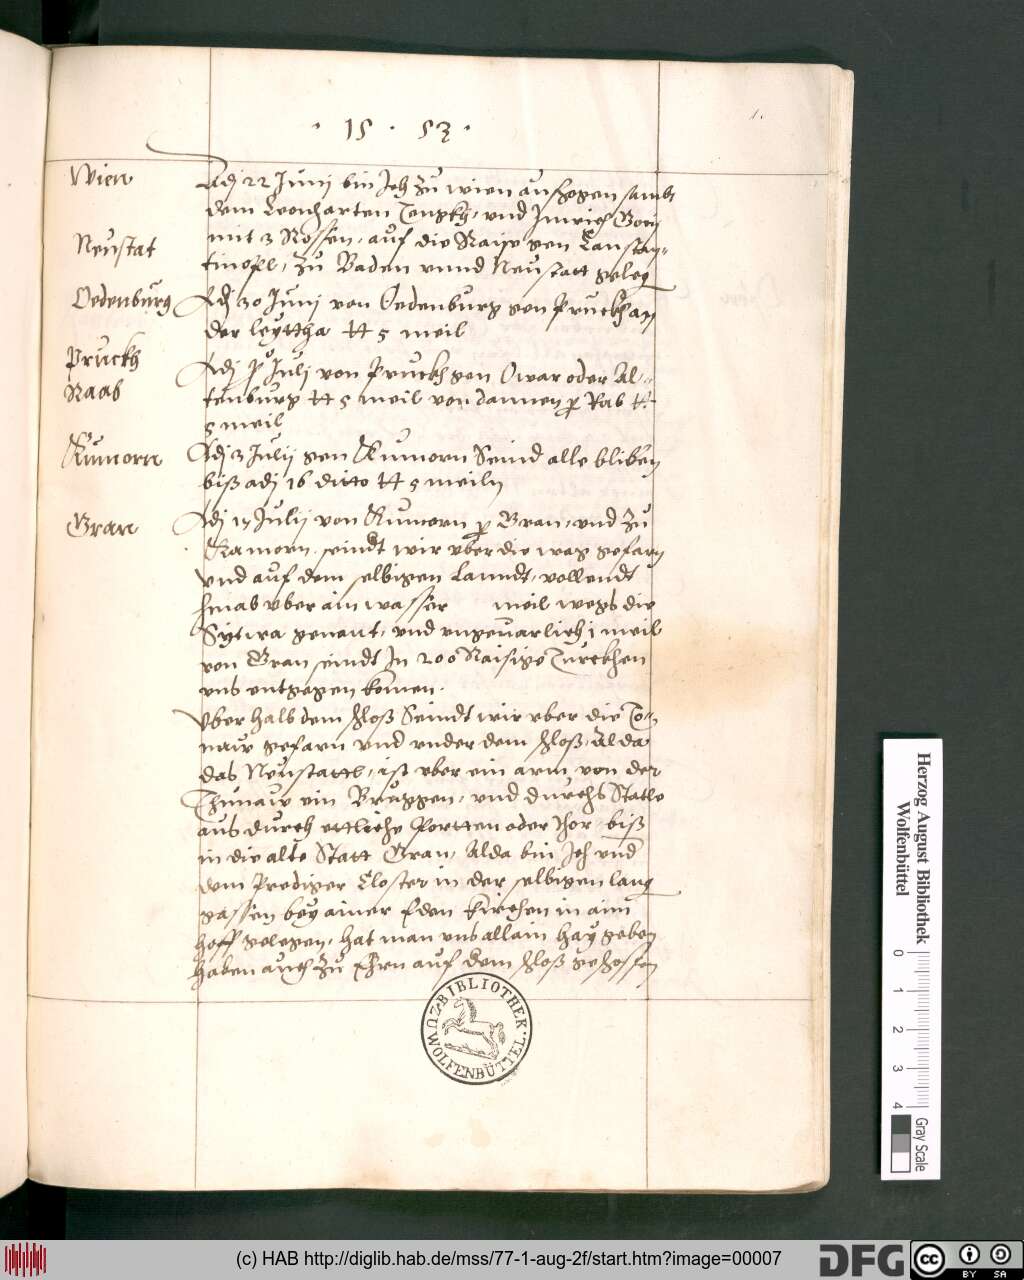 1.
· 15 · 53 ·
Wien
Adj 22 Junij bin Jch zu wien aufzogen sambt
dem Leonharten und
mit 3 Rossen, auf die Raiß gen Constan-
Neustat
tinopl, zu Baden unnd Neustatt geleg
Oedenburg
Adj 30 Junij von Oedenburg gen Pruckh an
der leyttha tt 5 meil
Pruckh
Adj Julj von Pruckh gen Owar oder Al-
Raab
tenburg tt 5 meil von dannen Rab tt
5 meil
Kumorn
Adj 3 Julij gen Kumorn Seind alle bliben
biß adj 16 ditto tt 5 meiln
Gran
Adj Julij von Kumorn Gran, und zu
Kamorn seindt wir uber die wag gefarn
Und auf dem selbigen Lanndt, vollendt
hinab uber ain wasser meil wegs die
Sytwa genant, und ungevarlich 1 meil
von Gran seindt Jn 200 Raisige Turckhen
uns entgegen komen.
Uberhalb dem schloß Seindt wir uber die To-
naw gefarn und under dem schloß, Alda
das Neustattl, ist uber ein arm von der
Thunaw ein Bruggen, und durchs Statle
aus durch ettliche Portten oder thor, biß
in die alte Statt Gran, Alda bin Jch und
dem Prediger Closter in der selbigen lang
gassen bey ainer öden kirchen in aim
hoff gelegen, hat man uns allain hay geben
haben auch zu Ehrn auf dem schloß geschossen
BIBLIOTHEK
ZU WOLFENBÜTTEL.
Herzog August Bibliothek
Wolfenbüttel
0 1 2 3 4
Gray Scale
(c) HAB http://diglib.hab.de/mss/77-1-aug-2f/start.htm?image=00007
DFG
cc BY SA